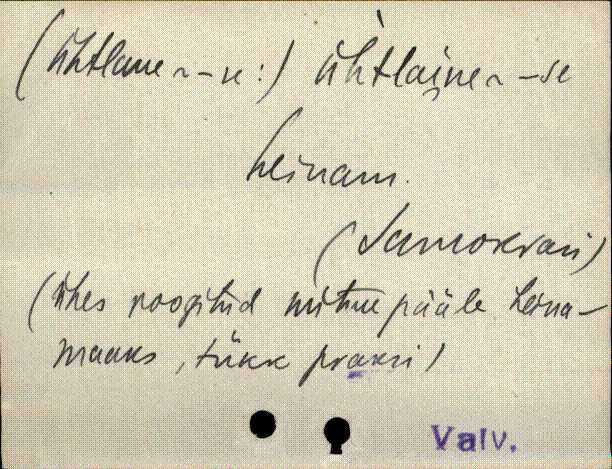 (ühtlane ~ -se:) ühtlaine ~ -se
heinam.
(Samokrasi)
(ühes roogitud mitme pääle heina-
maaks, tükk praksi)
Valv.